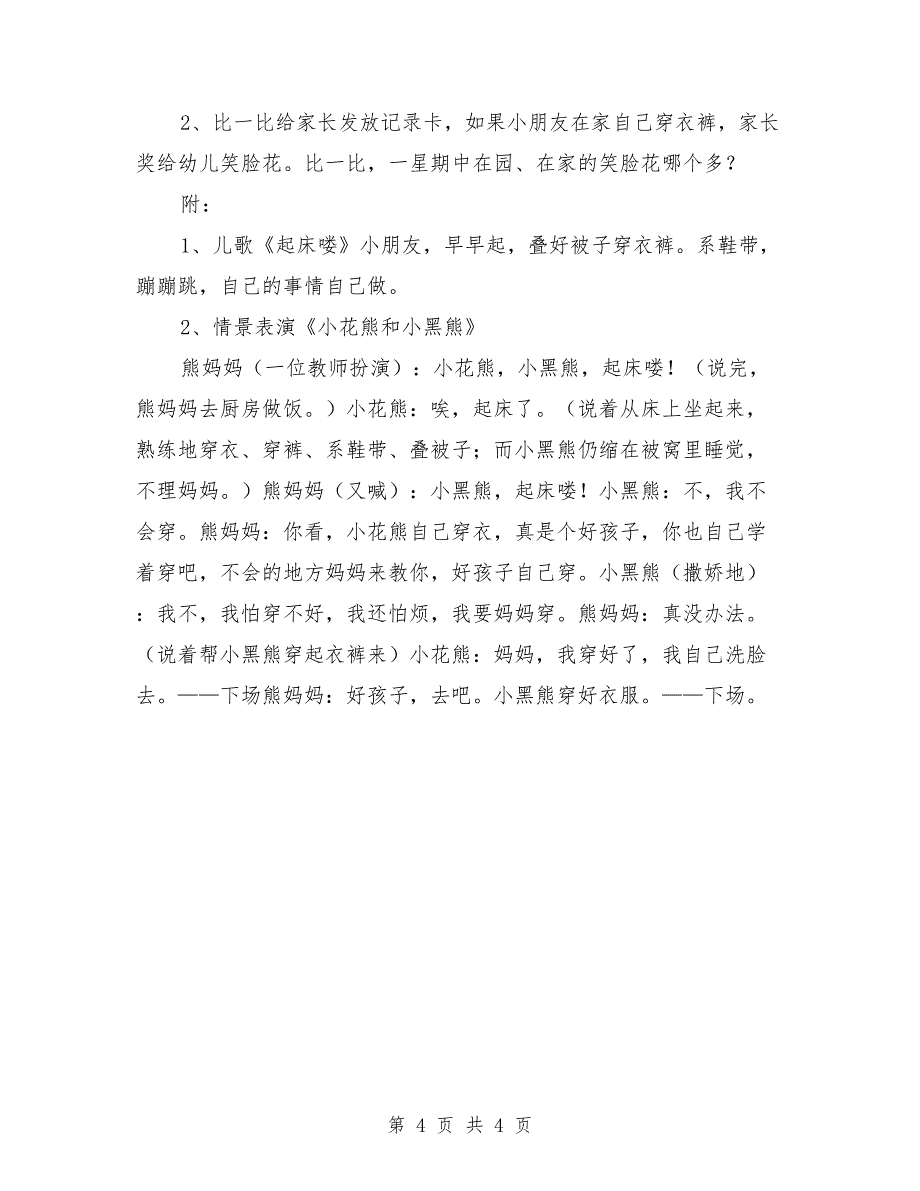 2、比一比给家长发放记录卡，如果小朋友在家自己穿衣裤，家长
奖给幼儿笑脸花。比一比，一星期中在园、在家的笑脸花哪个多？
附：
1、儿歌《起床喽》小朋友，早早起，叠好被子穿衣裤。系鞋带，
蹦蹦跳，自己的事情自己做。
2、情景表演《小花熊和小黑熊》
熊妈妈（一位教师扮演）：小花熊，小黑熊，起床喽！（说完，
熊妈妈去厨房做饭。）小花熊：唉，起床了。（说着从床上坐起来，
熟练地穿衣、穿裤、系鞋带、叠被子；而小黑熊仍缩在被窝里睡觉，
不理妈妈。）熊妈妈（又喊）：小黑熊，起床喽！小黑熊：不，我不
会穿。熊妈妈：你看，小花熊自己穿衣，真是个好孩子，你也自己学
着穿吧，不会的地方妈妈来教你，好孩子自己穿。小黑熊（撒娇地）
：我不，我怕穿不好，我还怕烦，我要妈妈穿。熊妈妈：真没办法。
（说着帮小黑熊穿起衣裤来）小花熊：妈妈，我穿好了，我自己洗脸
去。——下场熊妈妈：好孩子，去吧。小黑熊穿好衣服。——下场。
第 4 页 共 4 页